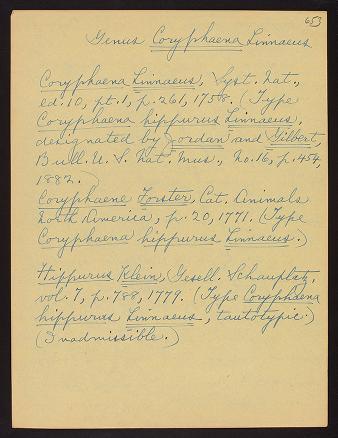 653
Genus Coryphaena Linnaeus
Coryphaena Linnaeus, Syst. Nat.,
ed. 10, pt. 1, p. 261, 1758. (Type
Coryphaena hippurus Linnaeus,
designated by Jordan and Gilbert,
Bull. U. S. Nat. Mus., No. 16, p. 454,
1882.)
Coryphaene Forster, Cat. Animals
North America, p. 20, 1771. (Type
Coryphaena hippurus Linnaeus.)
Hippurus Klein, Gesell. Schauplatz,
vol. 7, p. 788, 1779. (Type Coryphaena
hippurus Linnaeus, tautotypic.)
(Inadmissible.)